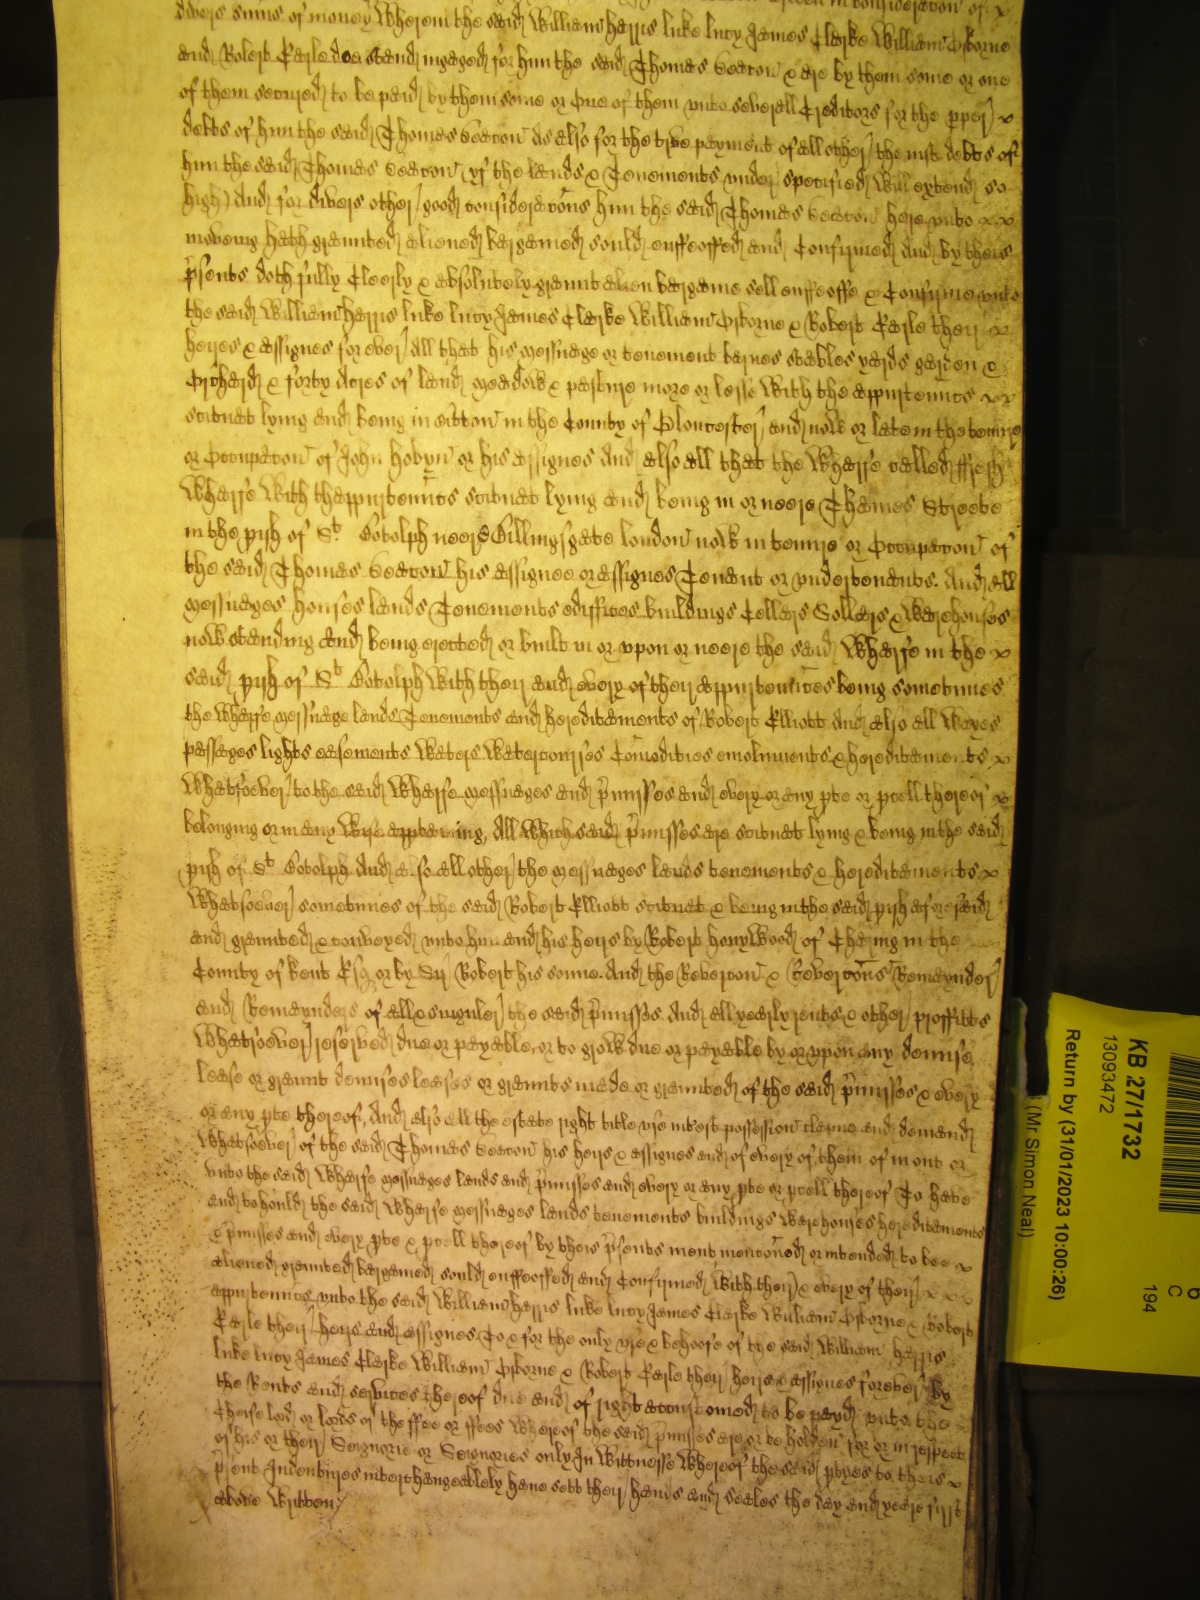 divers sums of money wherein the said William Harris Luke Lucy James Clarke William Osborne
and Robert Earle doe stand ingaged for him the said Thomas Seaton & are by them some or one
of them secured to be paid by them some or one of them unto severall Creditors for the pper x
debts of him the said Thomas Seaton as also for the true payment of all other the iust debts of
him the said Thomas Seaton (yf the lands & Tenements under specified will extend so
high) And for divers other good consideracons him the said Thomas Seaton here unto x x
moveing hath graunted aliened bargained sould enffeoffed and Confirmed And by theis
psents doth fully Cleerly & absolutely graunt alien bargaine sell enffeoffe & Confirme unto
the said William Harris Luke Lucy James Clarke William Osborne & Robert Earle their x
heires & assignes for ever All that his messuage or tenement barnes stables yards garden &
Orchard & forty Acres of land meadow & pasture more or lesse with the appurtennts x x
scituat lying and being in in the County of Gloucester and now or late in the tenure
or Occupacon of John Hobyn or his assignes And also all that the Wharfe called ffresh
Wharfe with thappurtennts scituat lying and being in or neere Thames Streete
in the pish of St Botolph neere Billingsgate London now in tenure or Occupacon of
the said Thomas Seaton his assignee or assignes Tenant or undertenants. And all
messuages houses lands Tenements ediffices buildings Cellers Sollers & Warehouses
now standing and being erected or built in or upon or neere the said Wharfe in the x
said pish of St Botolph with their and every of their appurtennces being sometimes
the wharfe messuage lands Tenements and hereditaments of Robert Elliott And also all wayes
passages lights easements waters watercourses Comodities emoluments & hereditaments x
whatsoever to the said Wharfe messuages and pmisses and every or any pte or pcell thereof x
belonging or in any wise apptaining, All which said pmisses are scituat lying & being in the said
pish of St Botolph And also all other the messuages lands tenements & hereditaments x
whatsoever sometimes of the said Robert Elliott scituat & being in the said pish aforesaid
and graunted & conveyed unto him and his heirs by Robert Honywood of Charing in the
County of Kent Esq or by Sr Robert his sonne. And the Revercon & Revercons Remaynder
and Remaynders of all & singuler the said pmisses. And all yearly rents & other proffitts
whatsoever reserved due or payable, or to grow due or payable by or upon any demise
lease or graunt demises leases or graunts made or graunted of the said pmisses & every
or any pte thereof, And also all the estate right title use interst possession clayme and demand
whatsoever of the said Thomas Seaton his heirs & assignes and of every of them of in out or
unto the said Wharfe messuages lands and pmisses and every or any pte or pcell thereof To have
and to hould the said Wharfe messuages lands tenements buildings warehouses hereditaments
& pmisses and every pte & pcell thereof by theis psents ment menconed or intended to bee x
aliened graunted bargained sould enffeoffed and Confirmed with their & every of their x x x
appurtennts unto the said William Harris Luke Lucy James Clarke William Osborne & Robert
Earle their heirs and assignes To & for the only use & behoofe of the said William Harris
Luke Lucy James Clarke William Osborne & Robert Earle their heirs & assignes forever By
the Rents and services thereof due and of right accustomed to be payd unto the
Cheife lord or lords of the ffee or ffees whereof the said pmisses are or be holden for or in respect
of his or their Seignorie or Seignories only In Wittnesse whereof the said ptyes to theis x
psent Indentures interchangeablely have sett their hands and seales the day and yeare first
above written
KB 27/1732
13093472
Return by (31/01/2023 10:00:26)
(Mr Simon Neal)
C
194